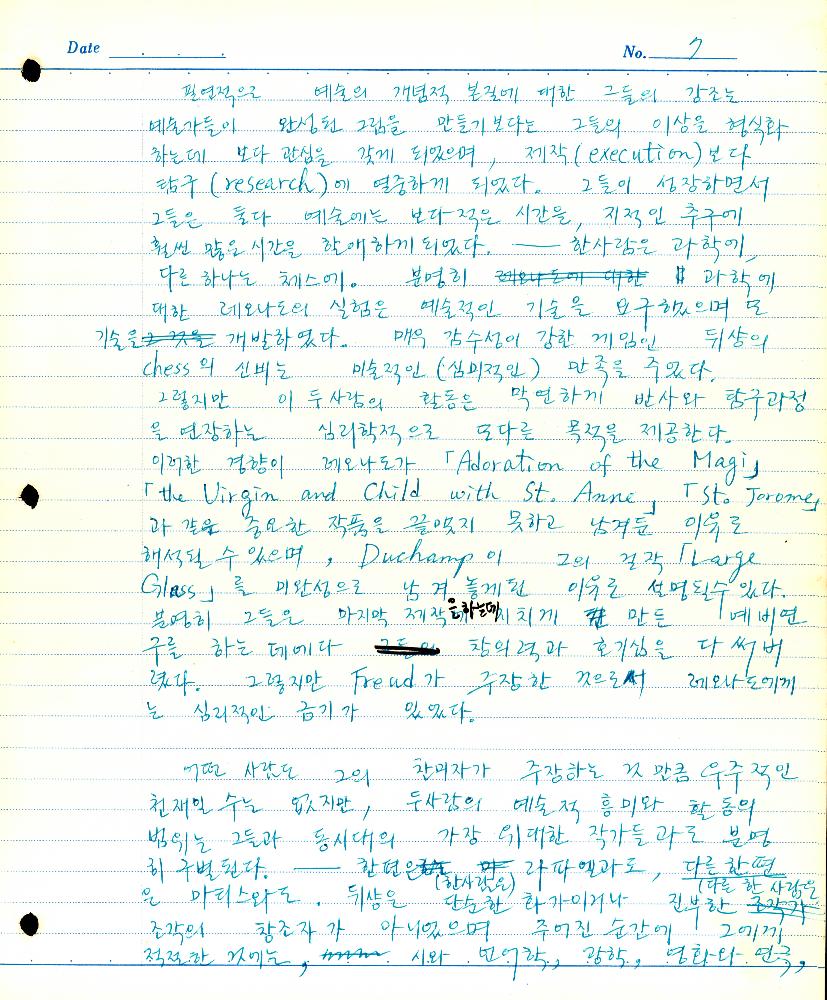 Date . . No. 7
필연적으로 예술의 개념적 본질에 대한 그들의 강조는
예술가들이 완성된 그림을 만들기보다는 그들의 이상을 형식화
하는데 보다 관심을 갖게 되었으며, 제작(execution)보다
탐구(research)에 열중하게 되었다. 그들이 성장하면서
그들은 둘다 예술에는 보다 적은 시간을, 지적인 추구에
훨씬 많은 시간을 할애하게 되었다. — 한사람은 과학에,
다른 하나는 체스에. 분명히 레오나도에 대한 과학에
대한 레오나도의 실험은 예술적인 기술을 요구했으며 또
기술을 개발하였다. 매우 감수성이 강한 게임인 뒤샹의
chess의 신비는 미술적인 (심미적인) 만족을 주었다.
그렇지만 이 두사람의 활동은 막연하게 반사와 탐구과정
을 연장하는 심리학적으로 또다른 목적을 제공한다.
이러한 경향이 레오나도가 「Adoration of the Magi」
「the Virgin and Child with St. Anne」 「St. Jorome」
과 같은 중요한 작품을 끝맺지 못하고 남겨둔 이유로
해석될 수 있으며, Duchamp이 그의 걸작 「Large
Glass」를 미완성으로 남겨 놓게된 이유로 설명될수 있다.
분명히 그들은 마지막 제작은 하는데 지치게 만든 예비연
구를 하는 데에다 그들의 창의력과 호기심을 다 써버
렸다. 그렇지만 Freud가 주장한 것으로서 레오나도에게
는 심리적인 금기가 있었다.
어떤 사람도 그의 찬미자가 주장하는 것 만큼 우주적인
천재일 수는 없지만, 두사람의 예술적 흥미와 활동의
범위는 그들과 동시대의 가장 위대한 작가들과도 분명
히 구별된다. — 한편은 (한사람은) 라파엘과도, 다른 한편
은 (다른 한 사람은) 마티스와도. 뒤샹은 단순한 화가이거나 진부한 조각가
조각의 창조자가 아니었으며 주어진 순간에 그에게
적절한 것에는, 시와 언어학, 광학, 영화와 연극,